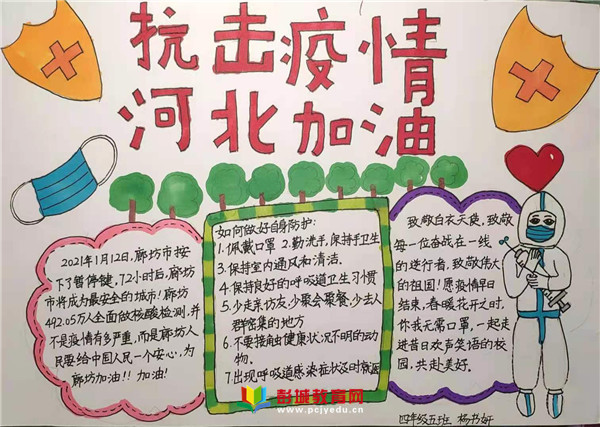 抗击疫情
河北加油
2021年1月12日,廊坊市按
下了暂停键,72小时后,廊坊
市将成为最安全的城市!廊坊
492.05万人全面做核酸检测,并
不是疫情有多严重,而是廊坊人
民要给中国人民一个安心,为
廊坊加油!!加油!
如何做好自身防护:
1.佩戴口罩 2.勤洗手,保持手卫生
3.保持室内通风和清洁.
4.保持良好的呼吸道卫生习惯
5.少走亲访友,少聚会聚餐,少去人
群密集的地方
6.不要接触健康状况不明的动
物.
7.出现呼吸道感染症状及时就医
致敬白衣天使,致敬
每一位奋战在一线
的逆行者,致敬伟大
的祖国!愿疫情早日
结束,春暖花开之时,
你我无需口罩,一起走
进昔日欢声笑语的校
园,共赴美好.
彭城教育网
www.pcjyedu.cn
四年级五班 杨书妍